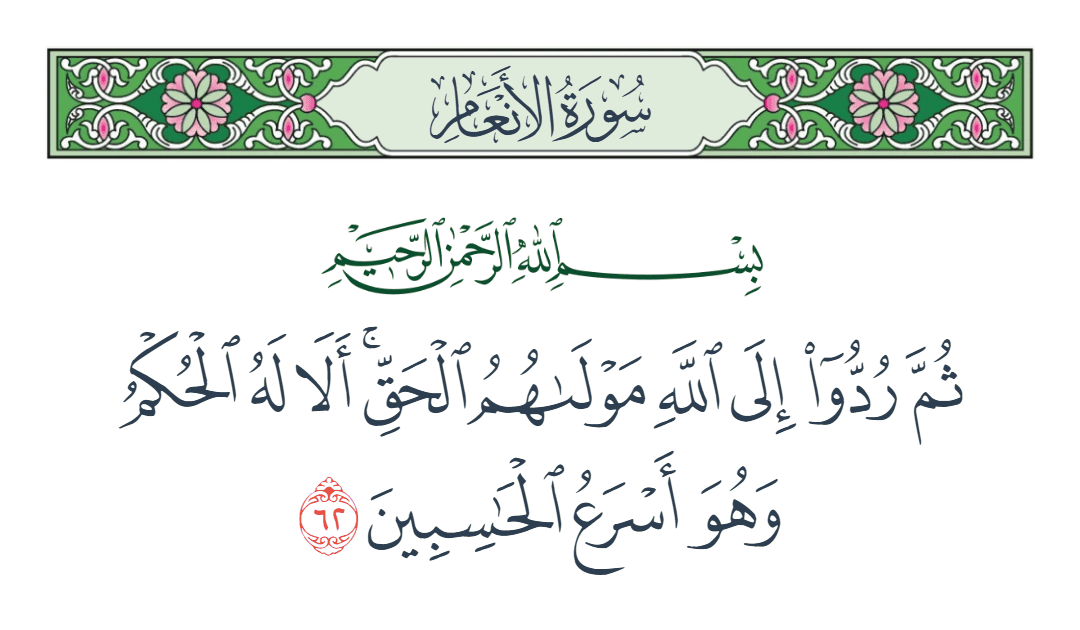 سُورَةُ الأَنْعَامِ
بِسْمِ ٱللَّهِ ٱلرَّحْمَٰنِ ٱلرَّحِيمِ
ثُمَّ رُدُّوٓا۟ إِلَى ٱللَّهِ مَوْلَىٰهُمُ ٱلْحَقِّ ۚ أَلَا لَهُ ٱلْحُكْمُ
وَهُوَ أَسْرَعُ ٱلْحَٰسِبِينَ ٦٢